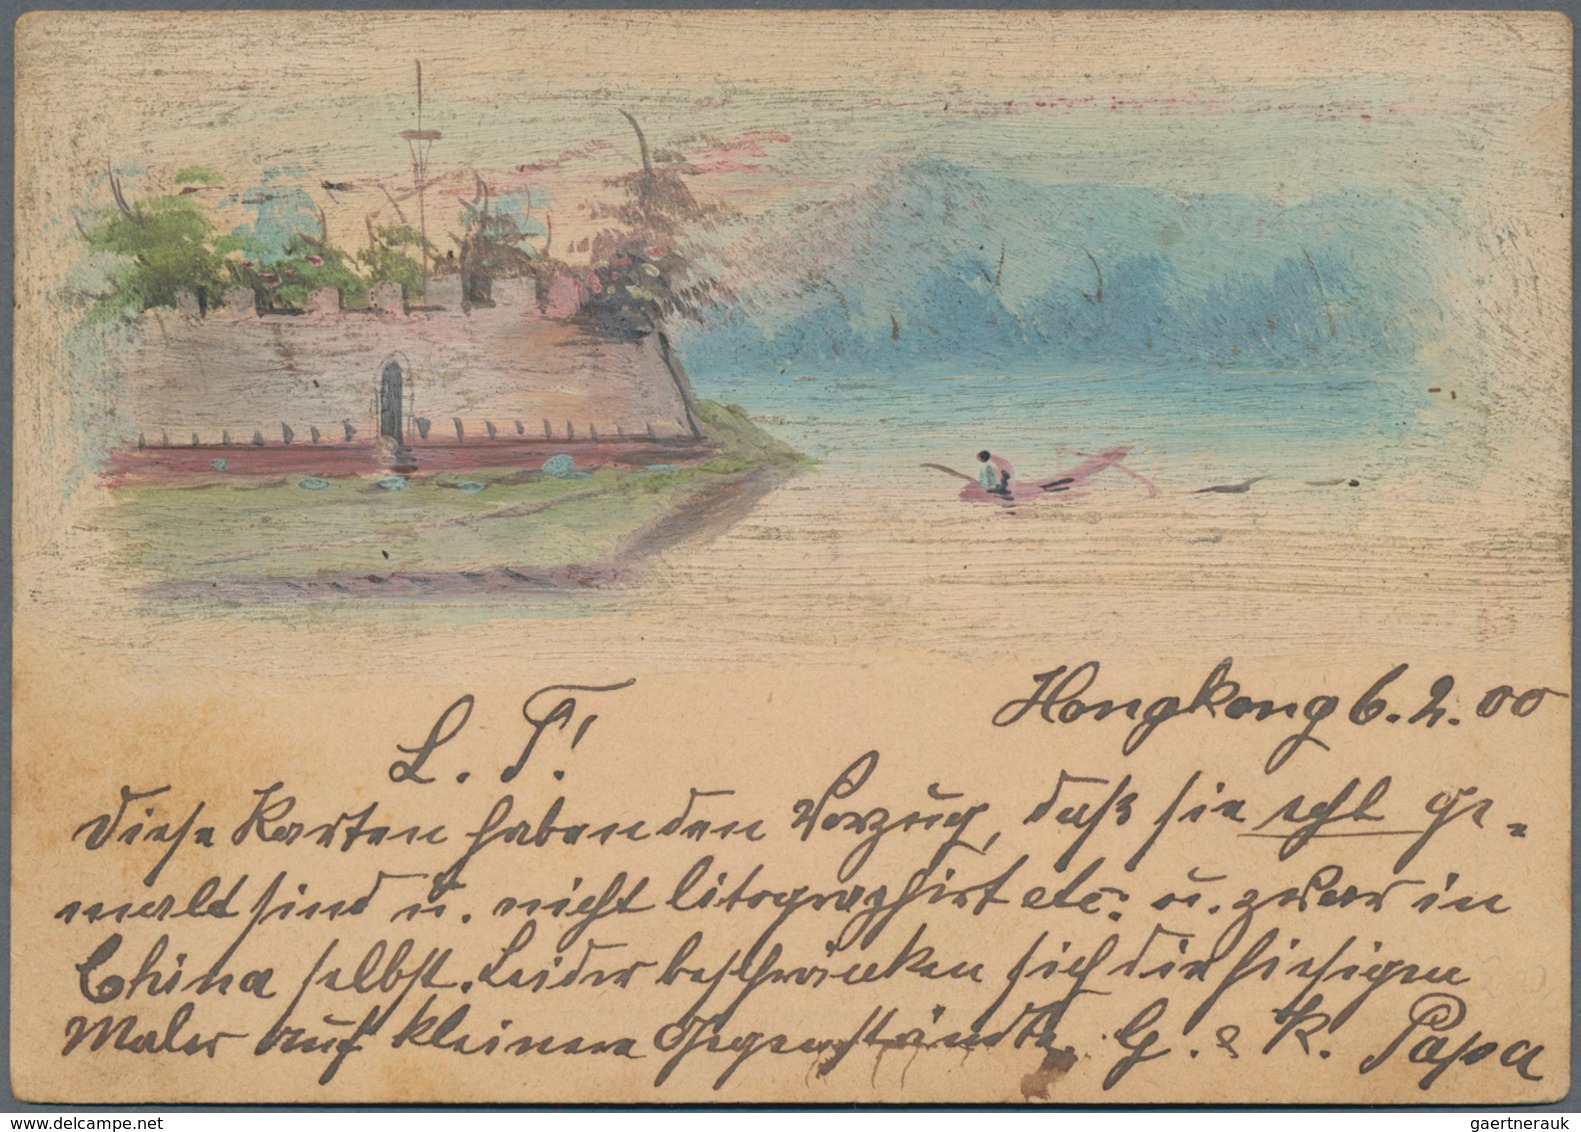 Hongkong 6.2.00
L. T.!
Diese Karten haben den Vorzug, daß sie echt ge-
malt sind u. nicht litographirt etc. u. zwar in
China selbst. Leider beschränken sich die hiesigen
Maler auf kleinere Gegenstände. G. & K. Papa
delcampe.net
gaertnerauk